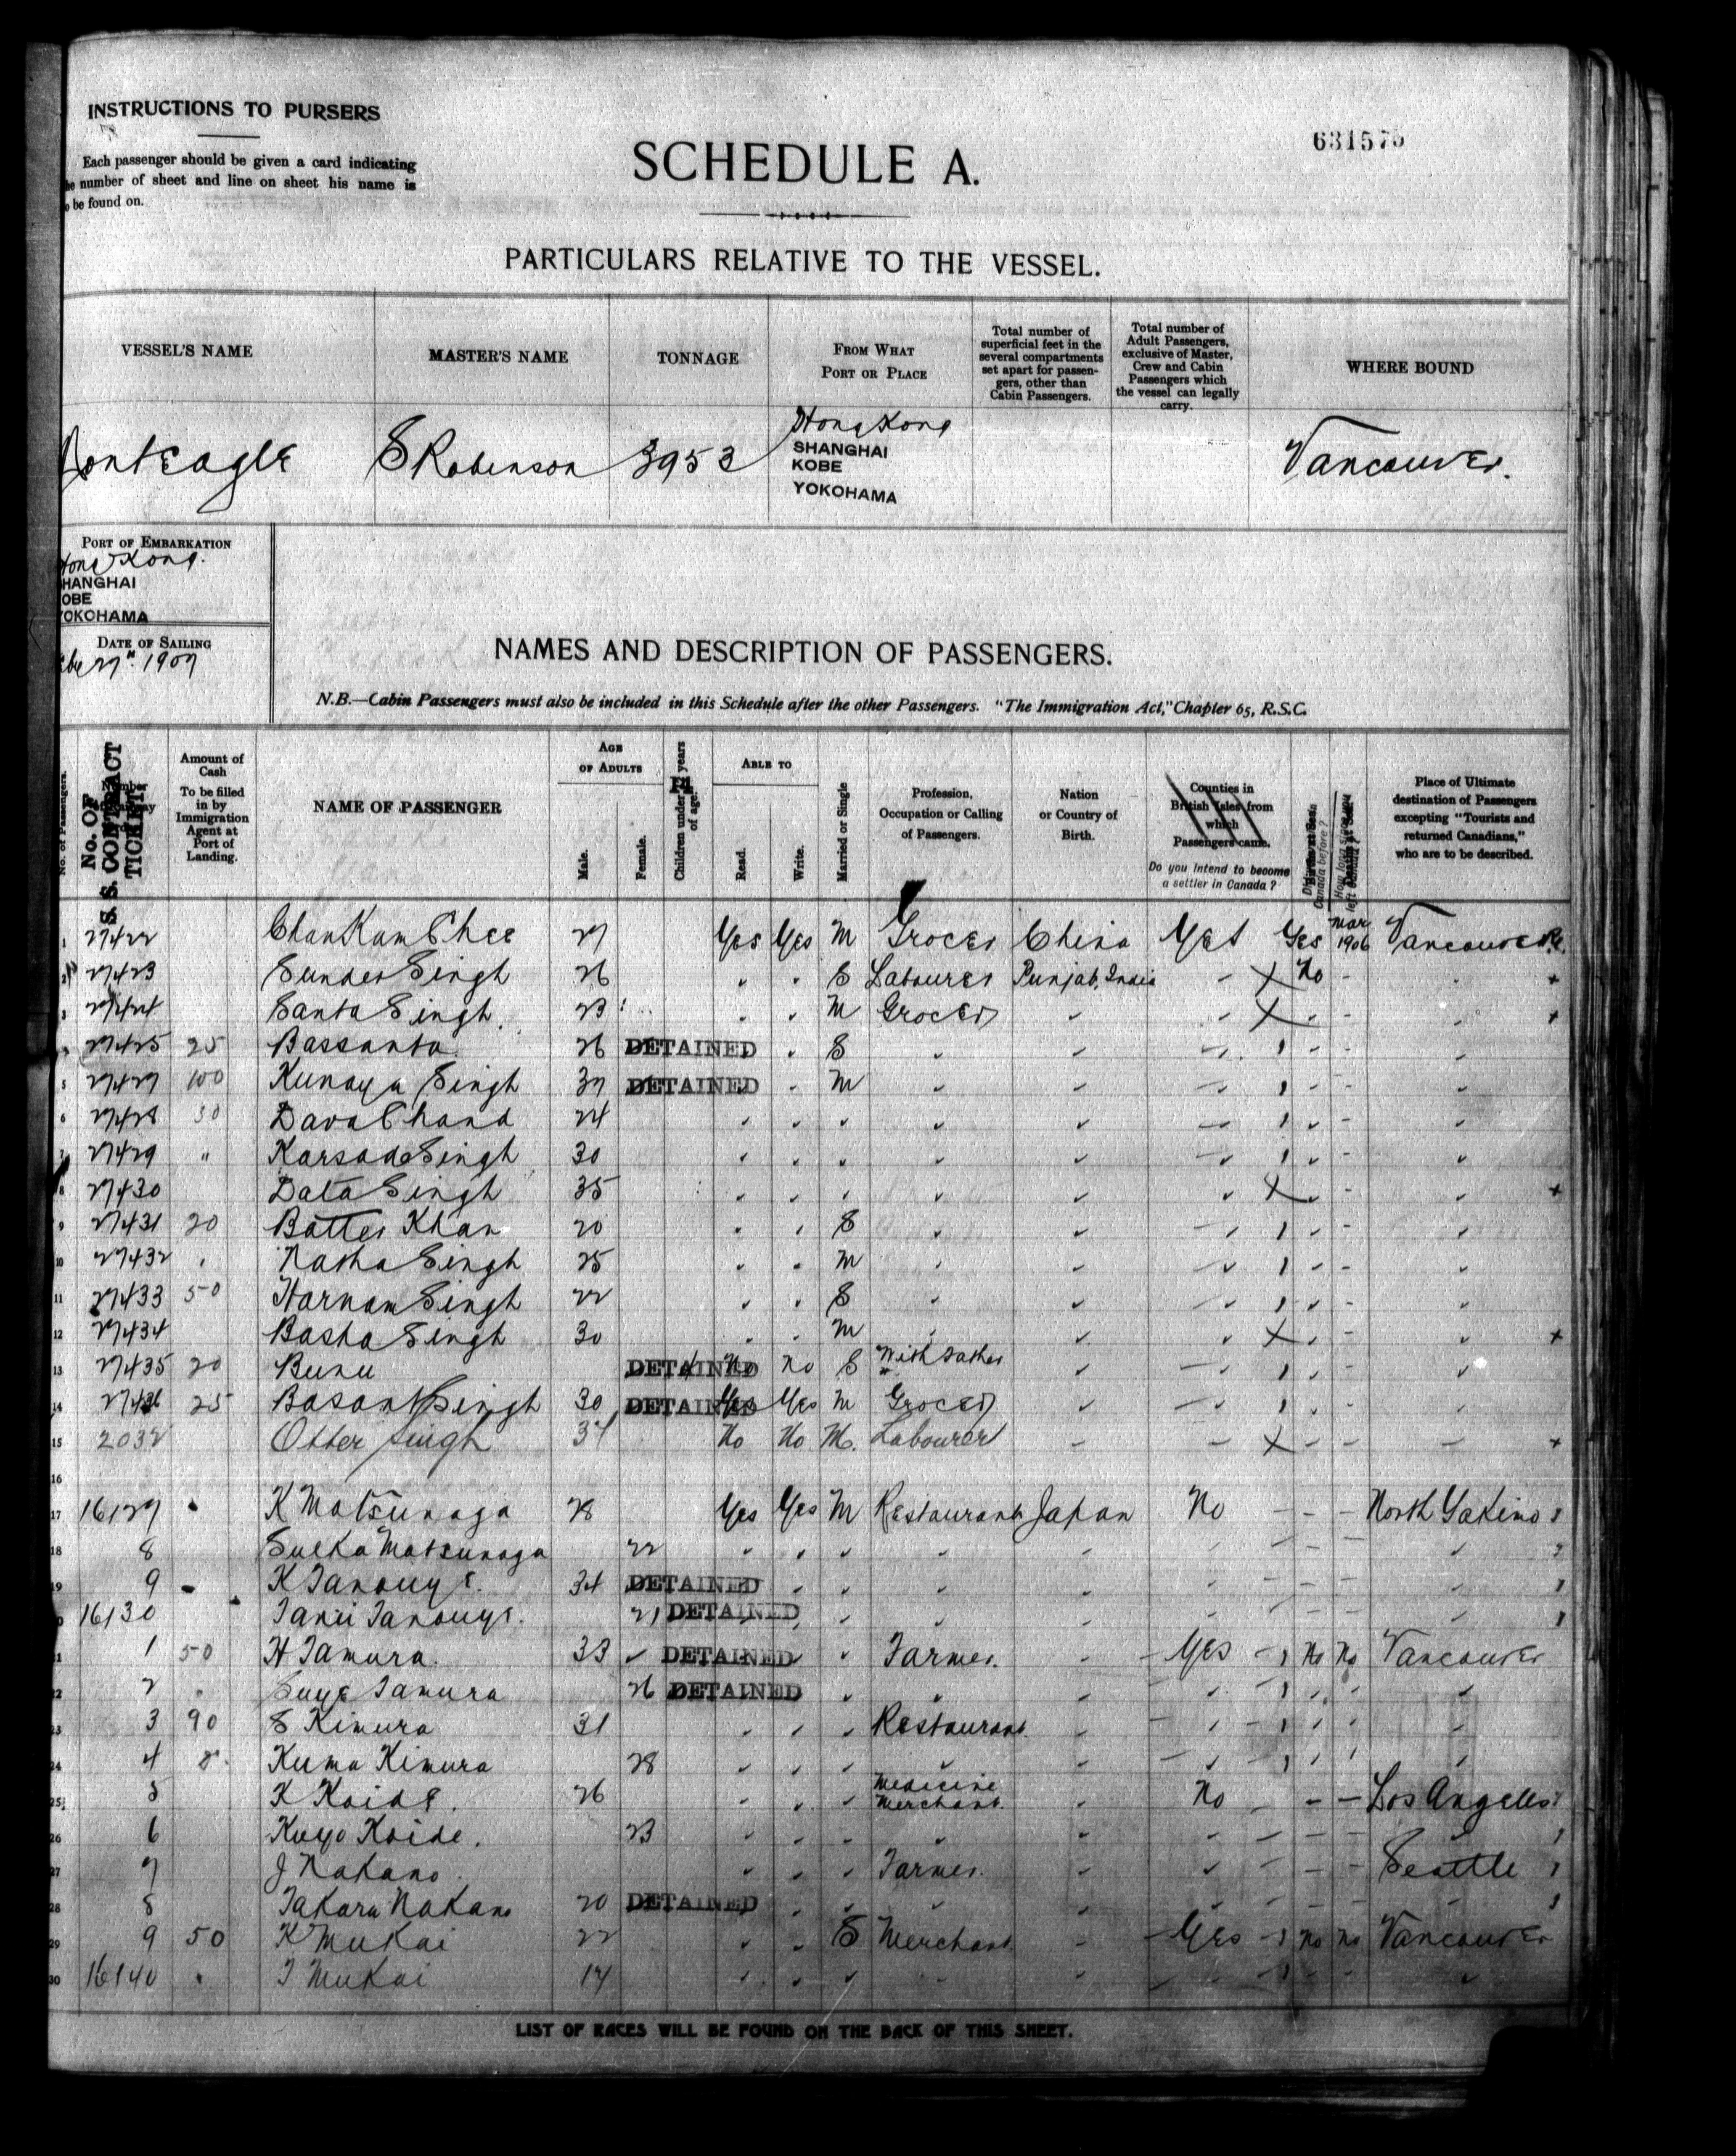 INSTRUCTIONS TO PURSERS
Each passenger should be given a card indicating
number of sheet and line on sheet his name is
be found on.
SCHEDULE A.
PARTICULARS RELATIVE TO THE VESSEL.
VESSEL'S NAME
MASTER'S NAME
TONNAGE
FROM WHAT
PORT OR PLACE
Total number of
superficial feet in the
several compartments
set apart for passen-
gers, other than
Cabin Passengers.
Total number of
Adult Passengers,
exclusive of Master,
Crew and Cabin
Passengers which
the vessel can legally
carry.
WHERE BOUND
MontEagle
S Robinson
3953
HongKong
SHANGHAI
KOBE
YOKOHAMA
Vancouver.
PORT OF EMBARKATION
Hong Kong.
HANGHAI
OBE
YOKOHAMA
DATE OF SAILING
27" 1907
NAMES AND DESCRIPTION OF PASSENGERS.
N.B.—Cabin Passengers must also be included in this Schedule after the other Passengers. "The Immigration Act," Chapter 65, R.S.C.
No. of Passengers.
No. OF
S. S. CONTRACT
TICKET
Amount of
Cash
To be filled
in by
Immigration
Agent at
Port of
Landing.
NAME OF PASSENGER
AGE
OF ADULTS
Male.
Female.
Children under 12 years
of age.
ABLE TO
Read.
Write.
Married or Single
Profession,
Occupation or Calling
of Passengers.
Nation
or Country of
Birth.
Counties in
British Isles from
which
Passengers came.
Do you intend to become
a settler in Canada?
Canada before?
Place of Ultimate
destination of Passengers
excepting "Tourists and
returned Canadians,"
who are to be described.
1 27422 Chan Kam Chee 27 Yes Yes M Grocer China Yes Yes Mar 1906 Vancouver
2 27423 Sunder Singh 26 " " S Labourer Punjab, India - X No - +
3 27424 Santa Singh 23 " " M Grocer " X +
4 27425 25 Bassanta 26 DETAINED " S
5 27427 100 Kunaya Singh 37 DETAINED " M
6 27428 30 Dava Chand 24
7 27429 " Karsada Singh 30
8 27430 Data Singh 35 X +
9 27431 20 Batter Khan 20 S
10 27432 " Natha Singh 25 M
11 27433 50 Harnam Singh 22 S
12 27434 Basha Singh 30 M X +
13 27435 20 Bunu DETAINED No No S With Father
14 27436 25 Basant Singh 30 DETAINED Yes Yes M Grocer
15 2032 Otter Singh 37 No No M. Labourer X +
16
17 16127 K Matsunaga 28 Yes Yes M Restaurant Japan No - - - North Yakima
18 8 Sueka Matsunaga 22
19 9 K Tanouye. 34 DETAINED
16130 Tanii Tanouye. 21 DETAINED
1 50 H Tamura. 33 DETAINED Farmer. Yes No No Vancouver
2 Suye Tamura 26 DETAINED
23 3 90 S Kimura 31 Restaurant
24 4 Kuma Kimura 28
25 5 K Koide. 26 Medicine Merchant. No - - Los Angeles
26 6 Kuyo Koide. 23
27 7 J Nakano. Farmer. Seattle
28 8 Takara Nakano 20 DETAINED
29 9 50 K Mukai 22 S Merchant. Yes No No Vancouver
30 16140 T Mukai 17
LIST OF RACES WILL BE FOUND ON THE BACK OF THIS SHEET.